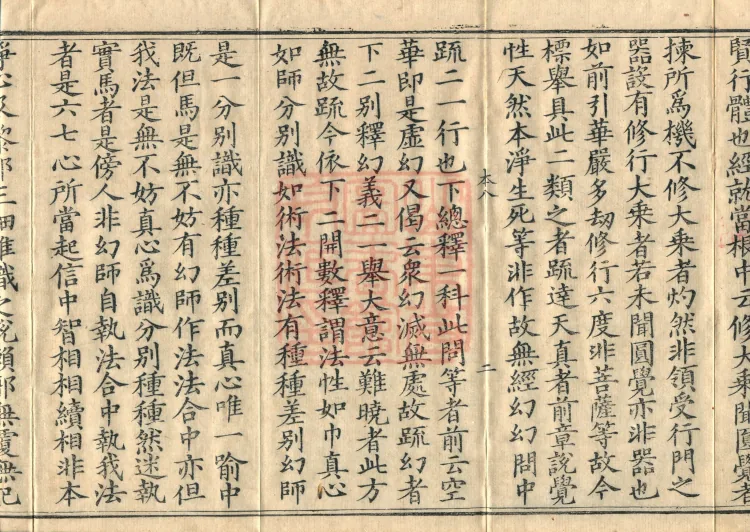 賢行體也經就當機中云修大乘聞圓覺者
揀所爲機不修大乘者灼然非領受行門之
噐設有修行大乘者若未聞圓覺亦非器也
如前引華嚴多劫修行六度非菩薩等故今
標舉具此二類之者䟽達天真者前章說覺
性天然本淨生死等非作故無經幻幻問中
本八 二
䟽二一行也下總釋一科此問等者前云空
華即是虛幻又偈云衆幻滅無處故䟽幻者
下二別釋幻義二一舉大意云難曉者此方
無故䟽今依下二開數釋謂法性如巾真心
如師分別識如術法術法有種種差別幻師
是一分別識亦種種差別而真心唯一喻中
既但馬是無不妨有幻師作法法合中亦但
我法是無不妨真心爲識分別種種然迷執
實馬者是傍人非幻師自執法合中執我法
者是六七心所當起信中智相相續相非本
淨心及黎耶三細唯識之說賴耶無覆無記